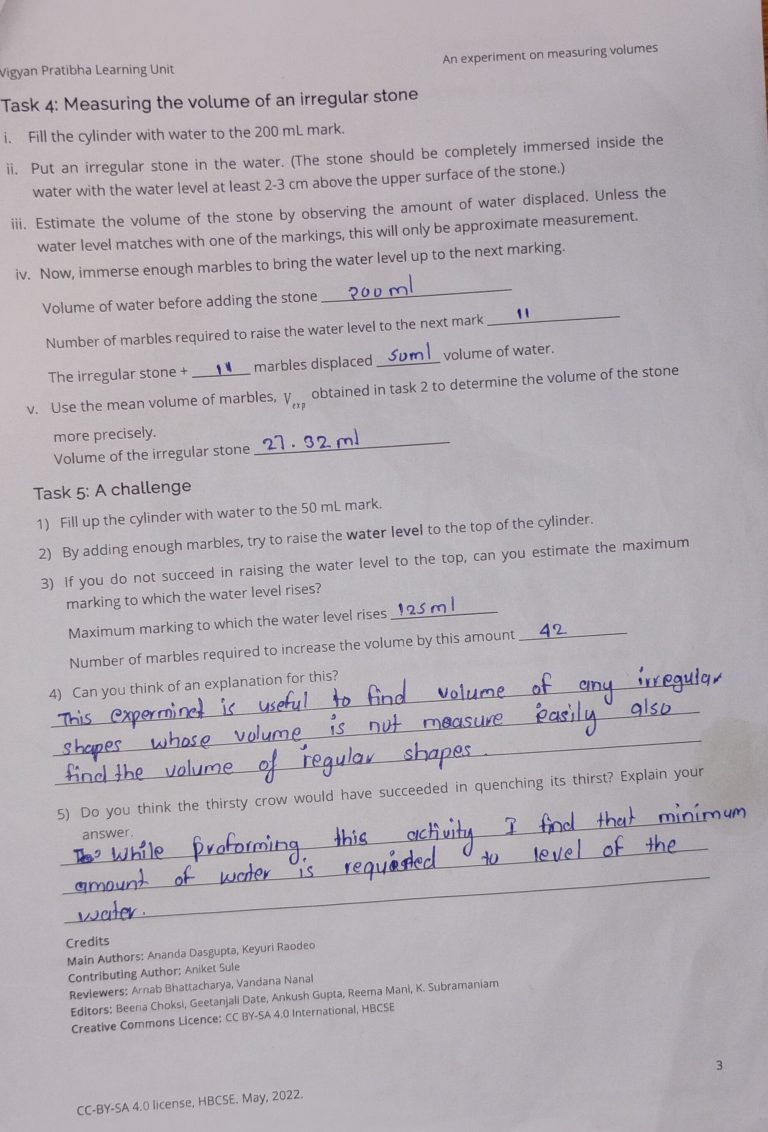 Vigyan Pratibha Learning Unit
An experiment on measuring volumes
Task 4: Measuring the volume of an irregular stone
i. Fill the cylinder with water to the 200 mL mark.
ii. Put an irregular stone in the water. (The stone should be completely immersed inside the
water with the water level at least 2-3 cm above the upper surface of the stone.)
iii. Estimate the volume of the stone by observing the amount of water displaced. Unless the
water level matches with one of the markings, this will only be approximate measurement.
iv. Now, immerse enough marbles to bring the water level up to the next marking.
Volume of water before adding the stone 200 ml
Number of marbles required to raise the water level to the next mark 11
The irregular stone + 11 marbles displaced 50ml volume of water.
v. Use the mean volume of marbles, V exp obtained in task 2 to determine the volume of the stone
more precisely.
Volume of the irregular stone 27.32 ml
Task 5: A challenge
1) Fill up the cylinder with water to the 50 mL mark.
2) By adding enough marbles, try to raise the water level to the top of the cylinder.
3) If you do not succeed in raising the water level to the top, can you estimate the maximum
marking to which the water level rises?
Maximum marking to which the water level rises 125 ml
Number of marbles required to increase the volume by this amount 42
4) Can you think of an explanation for this?
This experminet is useful to find volume of any irregular
shapes whose volume is not measure easily also
find the volume of regular shapes.
5) Do you think the thirsty crow would have succeeded in quenching its thirst? Explain your
answer.
While proforming this activity I find that minimum
amount of water is required to level of the
water.
Credits
Main Authors: Ananda Dasgupta, Keyuri Raodeo
Contributing Author: Aniket Sule
Reviewers: Arnab Bhattacharya, Vandana Nanal
Editors: Beena Choksi, Geetanjali Date, Ankush Gupta, Reema Mani, K. Subramaniam
Creative Commons Licence: CC BY-SA 4.0 International, HBCSE
3
CC-BY-SA 4.0 license, HBCSE. May, 2022.